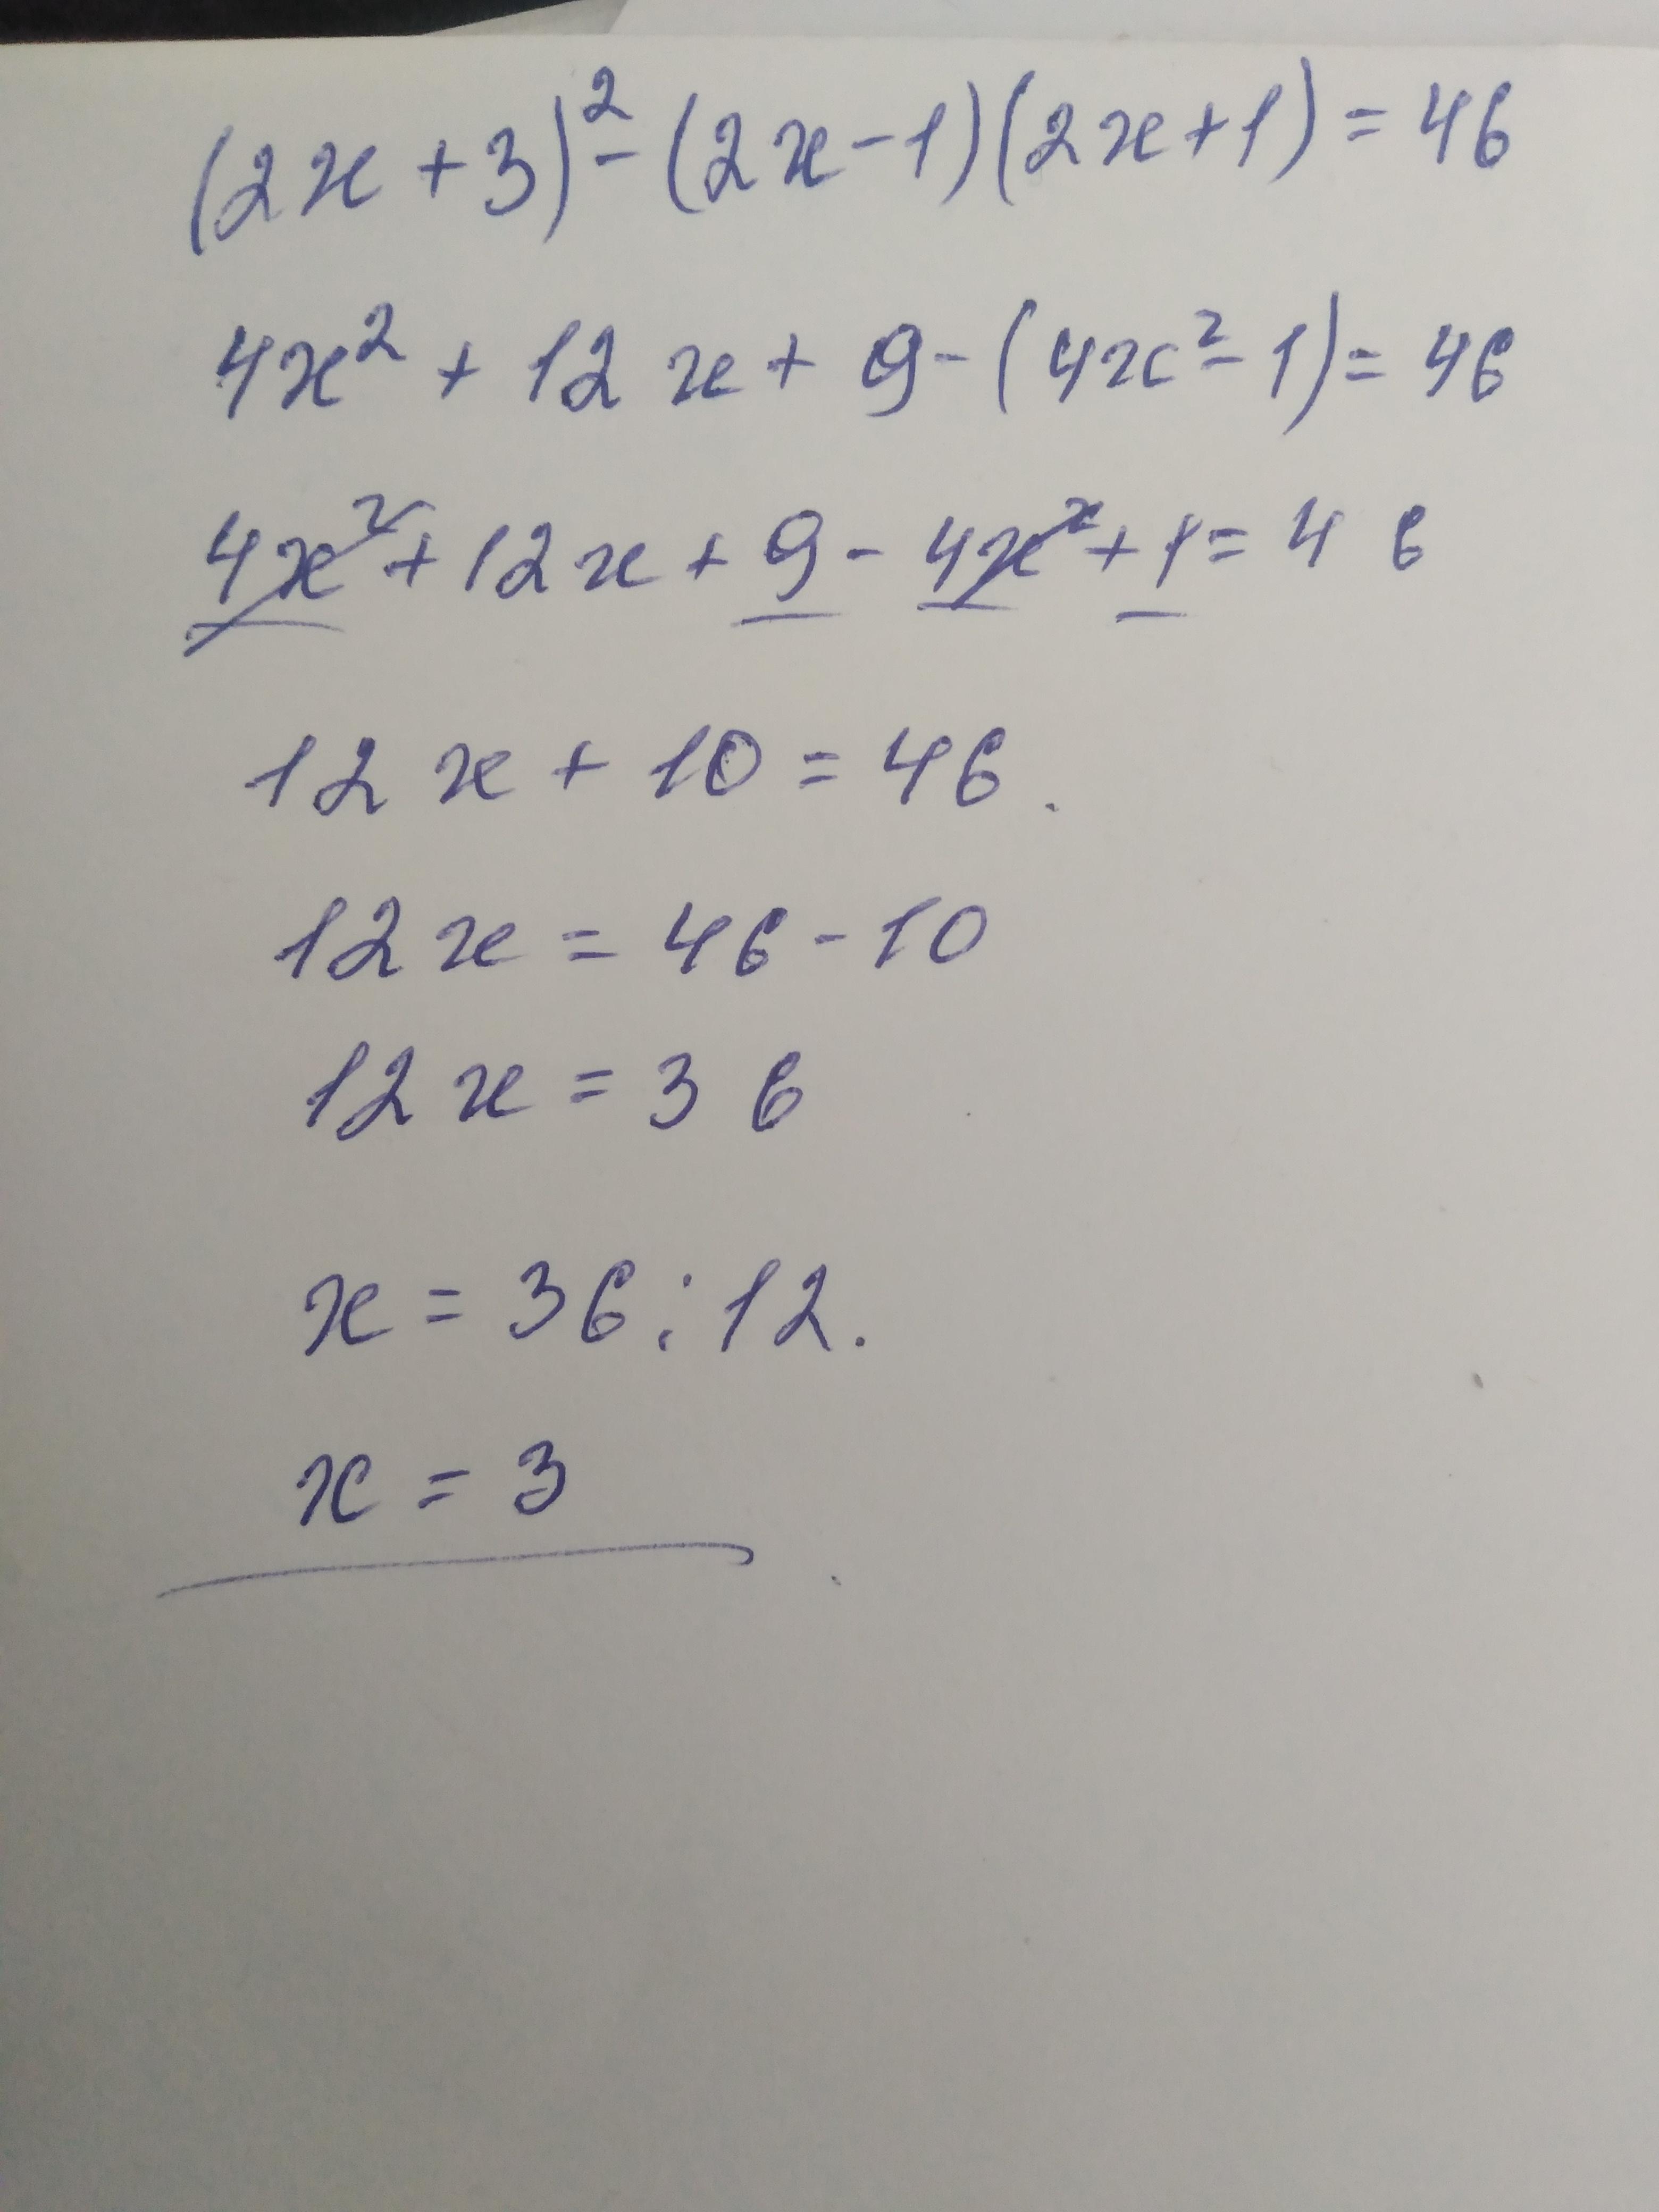 (2x + 3)² - (2x - 1)(2x + 1) = 46
4x² + 12x + 9 - (4x² - 1) = 46
4x² + 12x + 9 - 4x² + 1 = 46
12x + 10 = 46.
12x = 46 - 10
12x = 36
x = 36 : 12.
x = 3